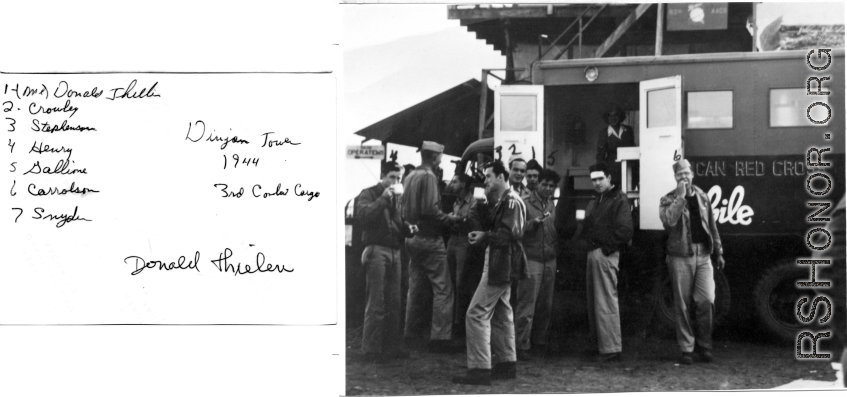 1-(me) Donald Thielen
2. Crowley
3 Stephenson
4 Henry
5 Gallime
6 Carrolson
7 Snyder
Dinjan Tower
1944
3rd Combat Cargo
Donald Thielen
OPERATIONS
CAN RED CRO
bile
4
2
1
5
6
RSHONOR.ORG